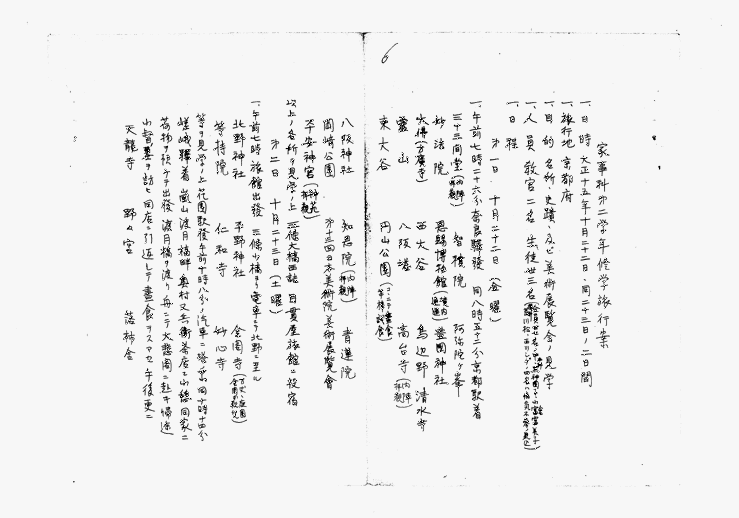 6
家事科第二学年修学旅行案
一、日時 大正十五年十月二十二日、同二十三日ノ二日間
一、旅行地 京都府
一、目的 名所、史蹟、及ビ美術展覧会ノ見学
一、人員 教官二名 生徒廿三名
一、日程
第一日、十月二十二日(金曜)
一、午前七時二十六分奈良驛發 同八時五十二分京都駅着
三十三間堂(内陣拝観) 智積院 阿弥陀ヶ峯
妙法院 恩賜博物館 豊國神社
大佛(方廣寺) 西大谷 鳥辺野 清水寺
霊山 八阪塔 高台寺(内陣拝観)
東大谷 円山公園
八阪神社 知恩院(内陣拝観) 青蓮院
岡崎公園 第十三回日本美術院美術展覧會
平安神宮(神苑拝観)
以上ノ各所ヲ見学ノ上 三條大橋西詰 目貫屋旅館ニ投宿
第二日 十月二十三日(土曜)
一、午前七時旅館出發 三條小橋ヨリ電車ニテ北野ニ至ル
北野神社 平野神社 金閣寺
等持院 仁和寺 妙心寺
等ヲ見学ノ上 花園駅發午前十時八分ノ汽車ニ
嵯峨驛着 嵐山渡月橋畔
荷物ヲ預ケテ出發 渡月橋ヲ渡リ舟ニテ大悲閣ニ赴キ帰途
小督墓ヲ訪ヒ同店ニ引返シテ晝食ヲスマセ午後更ニ
天龍寺 野々宮 落柿舎